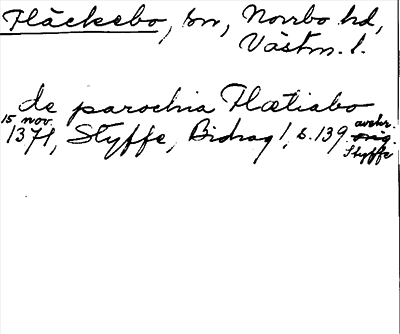 Fläckebo, sn, Norrbo hd,
Västm. l.
de parochia Flætiabo
15 nov.
1371, Styffe, Bidrag 1, s. 139. avskr.
orig.
Styffe